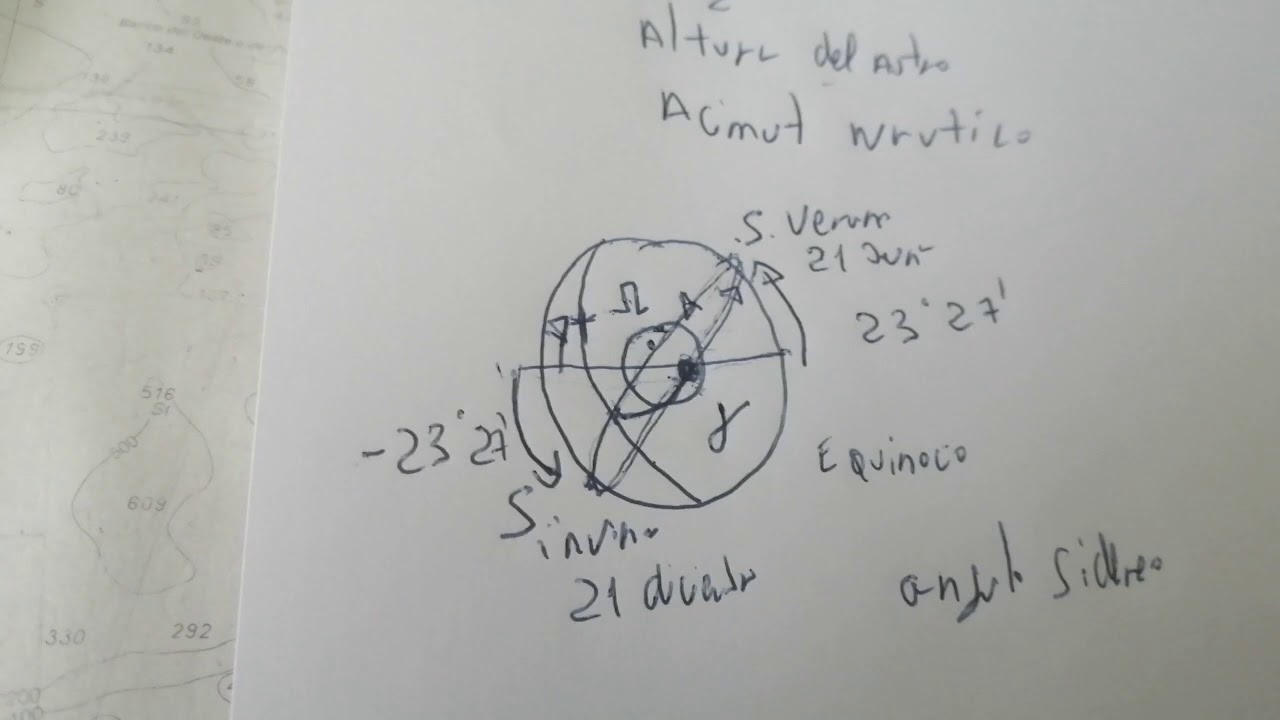 Altura del Astro
Acimut nautico
S. Veran
21 Jun
23° 27'
Ω
-23° 27'
γ
Equinocio
S invino
21 diciembr
angulo Sidereo
199
134
139
58
239
80
516
500
609
330
292
200
100